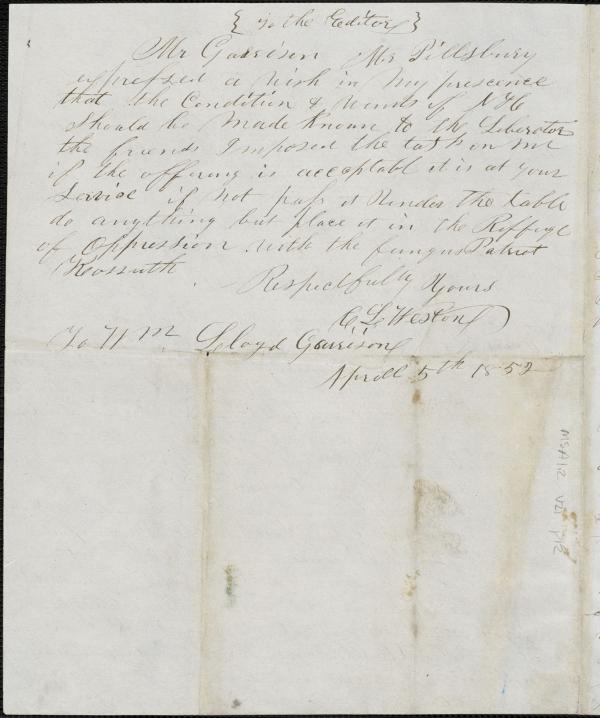 { to the Editor }
Mr Garrison Mr Pillsbury
expressed a wish in my prescence
that the Condition & wants of N H
Should be made Known to the Liberator
the friends Imposed the task on me
if the offering is acceptable it is at your
Service if not pass it Under the table
do anything but place it in the Reffuge
of Oppression with the fungus Patriot
Kossuth
Respectfully Yours
C L Weston
To Wm Lloyd Garrison
Aprill 5th 1852
MS A 1.2 V21 p12